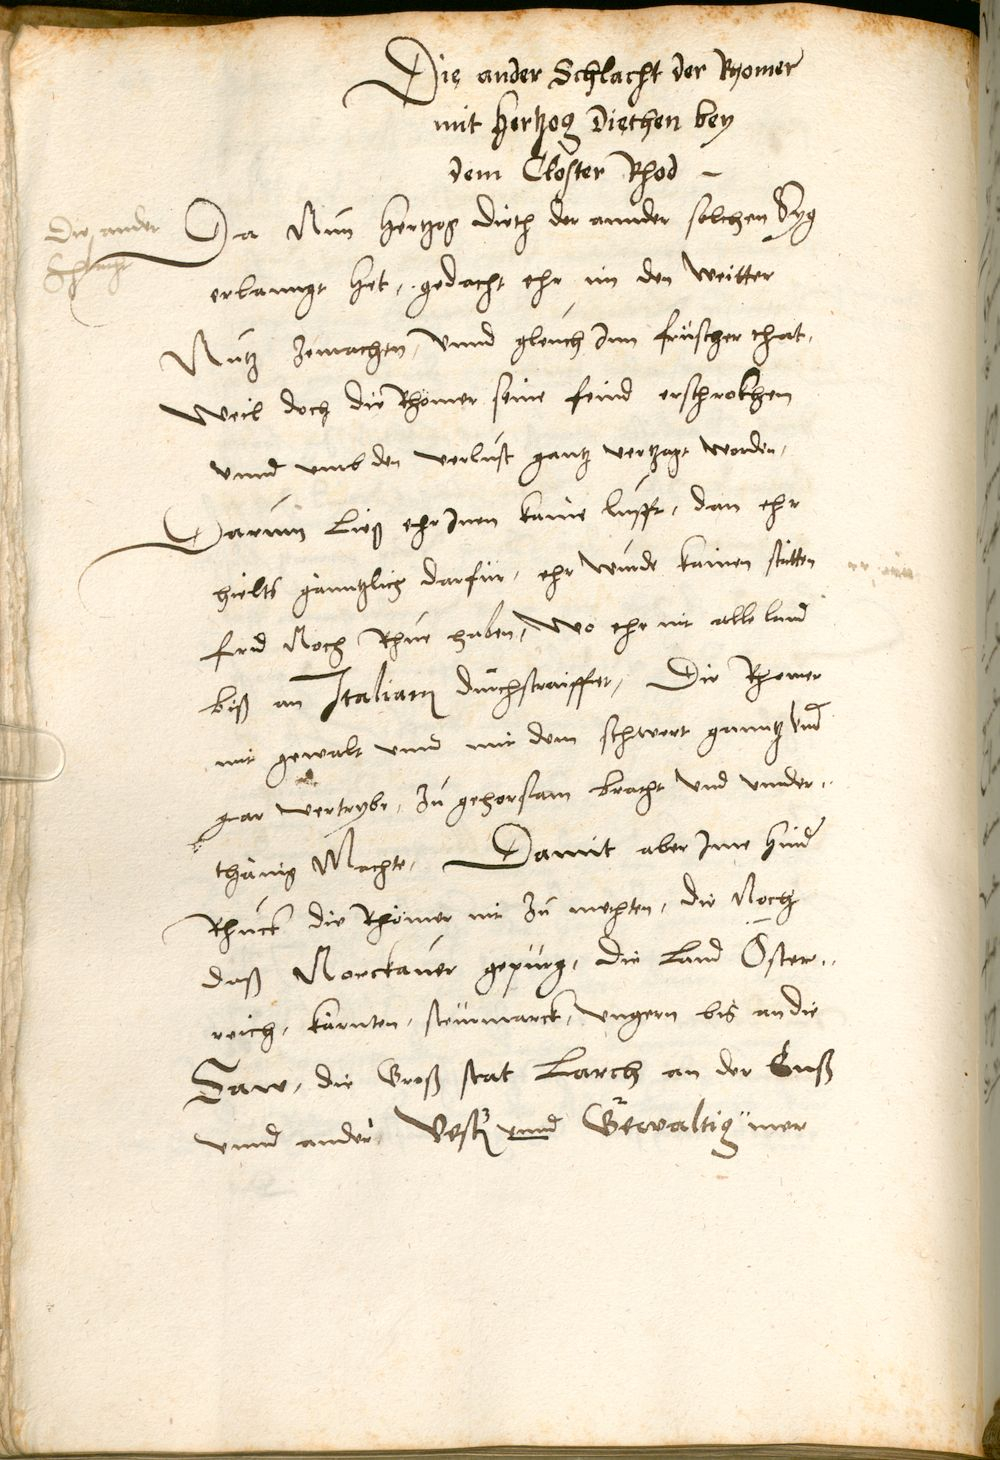 Die ander Schlacht der Rhomer
mit Hertzog Diethen bey
dem Closter Rhod –
Die ander
Da Nun Hertzog Dieth der annder solchen Syg
erlanngt het, gedacht ehr im den weitter
Nutz zumachen, vnnd gleich Inn früscher that,
Weil doch die Rhömer seine feind erschrokhen
vnnd vmb den verlust gantz vertzagt worden,
Darum Ließ ehr Inen kaine lufft, dan ehr
hielts gänntzlich darfür, ehr wurde kainen stätten
frid Noch Rhue haben, Wo ehr nit alle land
biß an Italiam durchstraiffet, Die Rhomer
mit gewalt vnnd mit dem schwert ganntz vnd
gar vertrybe, Zu gehorsam bracht vnd vnnder„
thänig Machte, Damit aber Ime hind
Rhuck die Rhömer nit Zu mechten, die Noch
daß Norckauer gepürg, die Land Öster„
reich, kärnten, steurmarck, vngern bis an die
Saw, die Groß stat Larch an der Enß
vnnd ander Vest vnnd Gewaltig mer